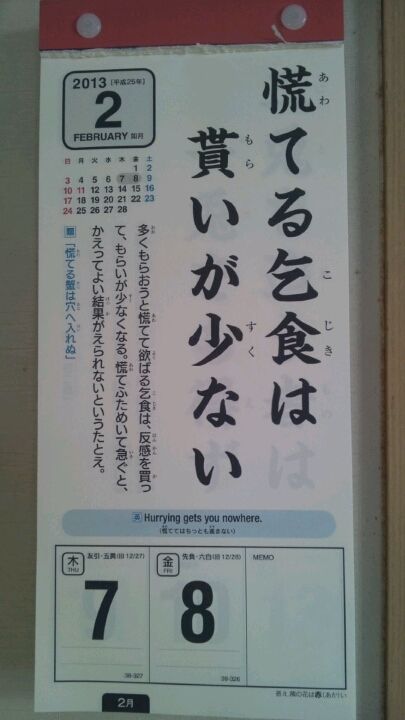 2013[平成25年]
2
FEBRUARY 如月
日 月 火 水 木 金 土
1 2
3 4 5 6 7 8 9
10 11 12 13 14 15 16
17 18 19 20 21 22 23
24 25 26 27 28
慌てる乞食は
貰いが少ない
多くもらおうと慌てて欲ばる乞食は、反感を買っ
て、もらいが少なくなる。慌てふためいて急ぐと、
かえってよい結果がえられないというたとえ。
「慌てる蟹は穴へ入れぬ」
英 Hurrying gets you nowhere.
(慌ててはちっとも進さない)
木 THU 友引・五黄(旧12/27)
7
38-327
金 FRI 先負・六白(旧12/28)
8
39-326
MEMO
2月